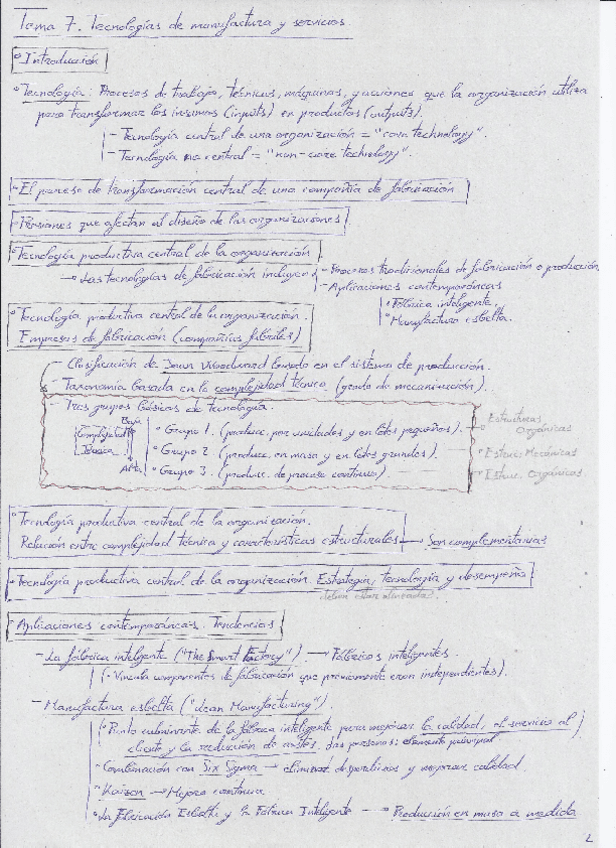 Tema 7. Tecnologías de manufactura y servicios.
Introducción
Tecnología: Procesos de trabajo, técnicas, máquinas, y acciones que la organización utiliza
para transformar los insumos (inputs) en productos (outputs).
- Tecnología central de una organización = "core technology".
- Tecnología no central = "non-core technology".
El proceso de transformación central de una compañía de fabricación
Presiones que afectan al diseño de las organizaciones
Tecnología productiva central de la organización
→ Las tecnologías de fabricación incluyen
- Procesos tradicionales de fabricación o producción
- Aplicaciones contemporáneas
Fábrica inteligente.
Manufactura esbelta.
Tecnología productiva central de la organización.
Empresas de fabricación (compañías fabriles)
Clasificación de Joan Woodward basada en el sistema de producción.
Taxonomía basada en la complejidad técnica (grado de mecanización).
Tres grupos básicos de tecnología.
Complejidad
Técnica
Baja
Alta
Grupo 1. (produce. por unidades y en lotes pequeños).
Grupo 2 (produce. en masa y en lotes grandes).
Grupo 3. (produce. de proceso continuo).
Estructuras
Orgánicas
Estruc. Mecánicas
Estruc. Orgánicas
Tecnología productiva central de la organización.
Relación entre complejidad técnica y características estructurales → Son complementarias
Tecnología productiva central de la organización. Estrategia, tecnología y desempeño
deben estar alineadas.
Aplicaciones contemporáneas. Tendencias
- La fábrica inteligente ("The Smart Factory") → Fábricas inteligentes.
Vincula componentes de fabricación que previamente eran independientes).
- Manufactura esbelta ("Lean Manufacturing").
Punto culminante de la fábrica inteligente para mejorar la calidad, el servicio al
cliente y la reducción de costes. Las personas: elemento principal.
Combinación con Six Sigma → eliminar desperdicios y mejorar calidad.
Kaizen → Mejora continua
La Fabricación Esbelta y la Fábrica Inteligente → Producción en masa a medida
1